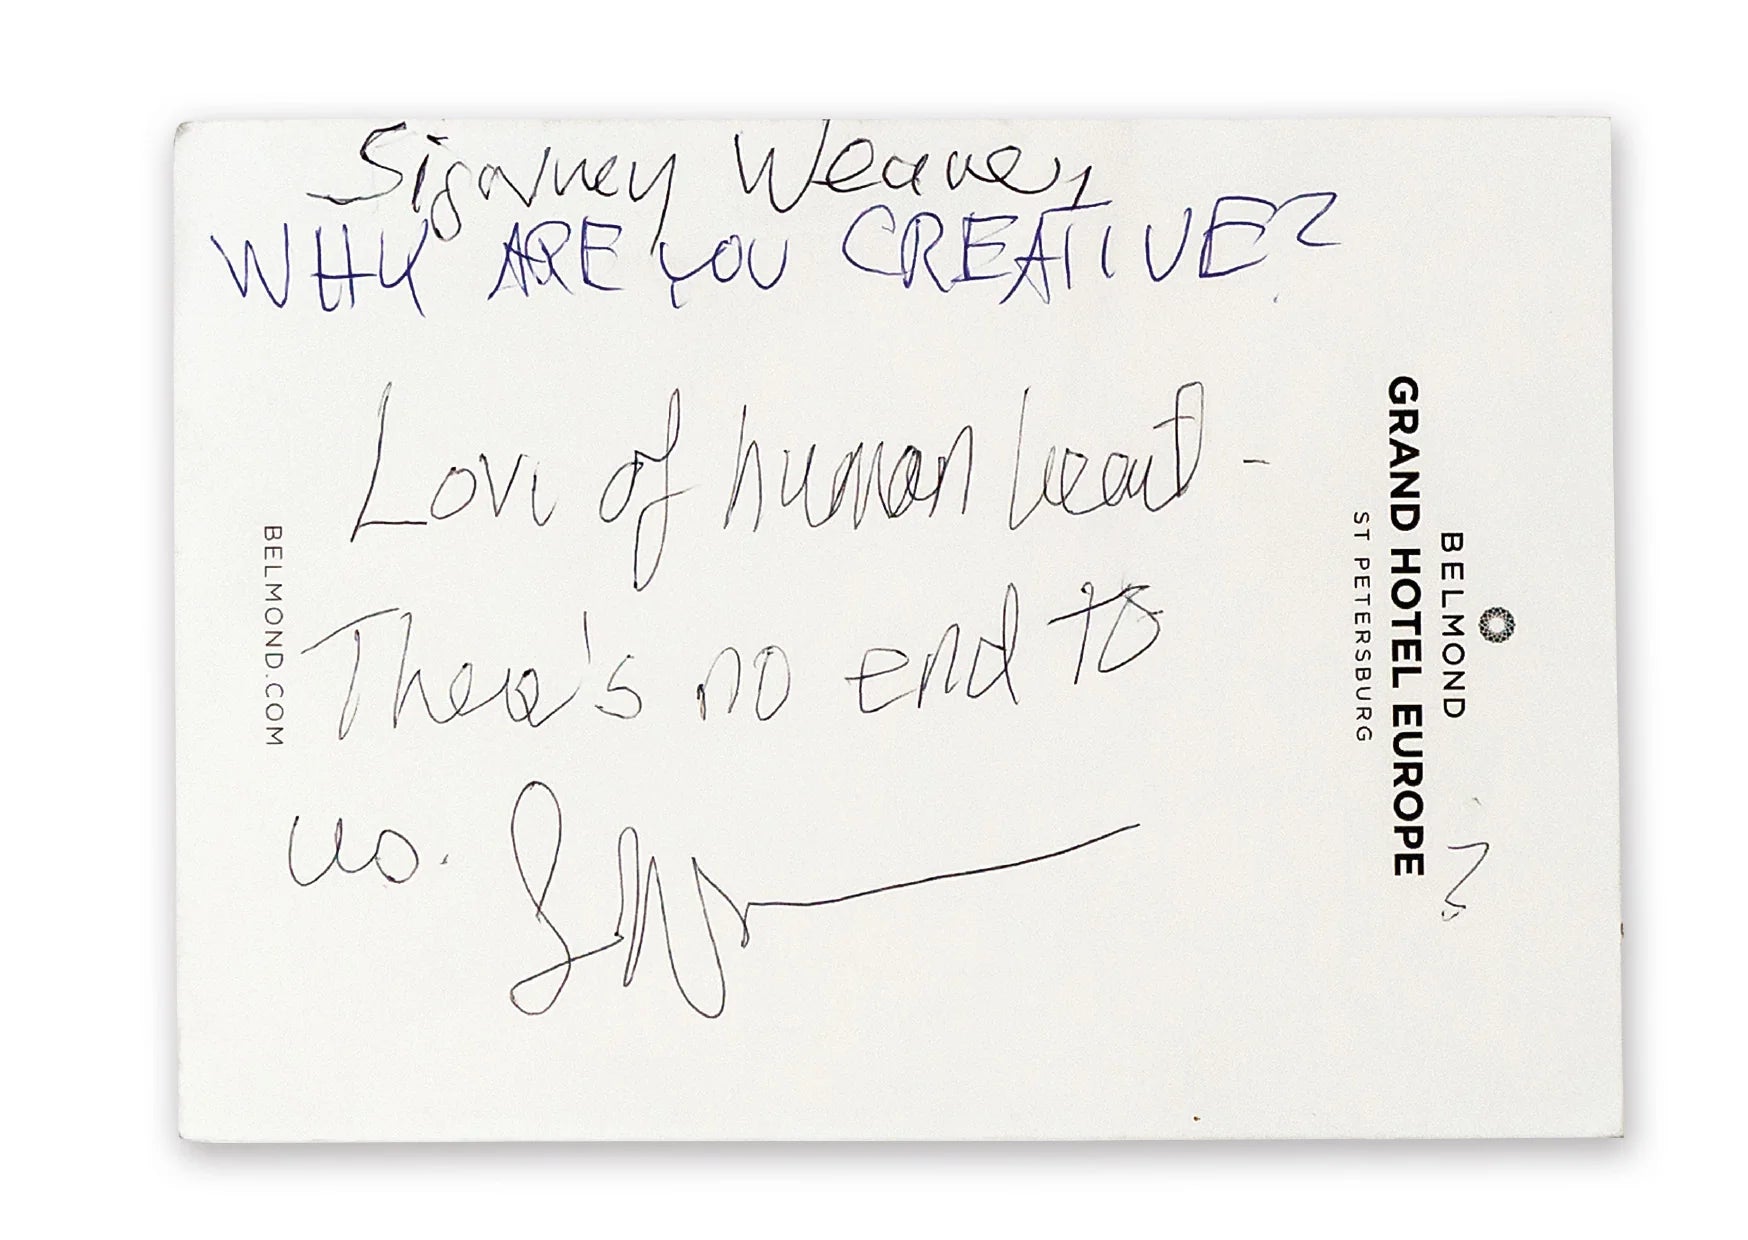 Sigourney Weaver
WHY ARE YOU CREATIVE?
Love of human heart -
There's no end to
us.
BELMOND
GRAND HOTEL EUROPE
ST PETERSBURG
?
BELMOND.COM